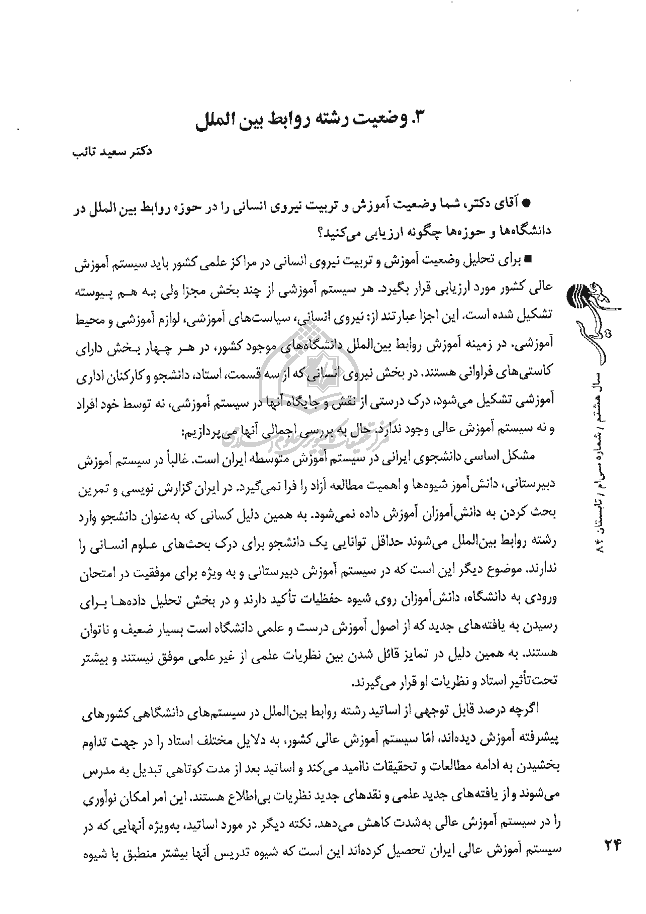 ۳. وضعیت رشته روابط بین الملل
دکتر سعید تائب
● آقای دکتر، شما وضعیت آموزش و تربیت نیروی انسانی را در حوزه روابط بین الملل در
دانشگاه‌ها و حوزه‌ها چگونه ارزیابی می‌کنید؟
■ برای تحلیل وضعیت آموزش و تربیت نیروی انسانی در مراکز علمی کشور باید سیستم آموزش
عالی کشور مورد ارزیابی قرار بگیرد. هر سیستم آموزشی از چند بخش مجزا ولی به هم پیوسته
تشکیل شده است. این اجزا عبارتند از: نیروی انسانی، سیاست‌های آموزشی، لوازم آموزشی و محیط
آموزشی. در زمینه آموزش روابط بین‌الملل دانشگاه‌های موجود کشور، در هر چهار بخش دارای
کاستی‌های فراوانی هستند. در بخش نیروی انسانی که از سه قسمت، استاد، دانشجو و کارکنان اداری
آموزشی تشکیل می‌شود، درک درستی از نقش و جایگاه آنها در سیستم آموزشی، نه توسط خود افراد
و نه سیستم آموزش عالی وجود ندارد. حال به بررسی اجمالی آنها می‌پردازیم:
مشکل اساسی دانشجوی ایرانی در سیستم آموزش متوسطه ایران است. غالباً در سیستم آموزش
دبیرستانی، دانش‌آموز شیوه‌ها و اهمیت مطالعه آزاد را فرا نمی‌گیرد. در ایران گزارش نویسی و تمرین
بحث کردن به دانش‌آموزان آموزش داده نمی‌شود. به همین دلیل کسانی که به‌عنوان دانشجو وارد
رشته روابط بین‌الملل می‌شوند حداقل توانایی یک دانشجو برای درک بحث‌های علوم انسانی را
ندارند. موضوع دیگر این است که در سیستم آموزش دبیرستانی و به ویژه برای موفقیت در امتحان
ورودی به دانشگاه، دانش‌آموزان روی شیوه حفظیات تأکید دارند و در بخش تحلیل داده‌ها برای
رسیدن به یافته‌های جدید که از اصول آموزش درست و علمی دانشگاه است بسیار ضعیف و ناتوان
هستند. به همین دلیل در تمایز قائل شدن بین نظریات علمی از غیر علمی موفق نیستند و بیشتر
تحت‌تأثیر استاد و نظریات او قرار می‌گیرند.
اگرچه درصد قابل توجهی از اساتید رشته روابط بین‌الملل در سیستم‌های دانشگاهی کشورهای
پیشرفته آموزش دیده‌اند، امّا سیستم آموزش عالی کشور، به دلایل مختلف استاد را در جهت تداوم
بخشیدن به ادامه مطالعات و تحقیقات ناامید می‌کند و اساتید بعد از مدت کوتاهی تبدیل به مدرس
می‌شوند و از یافته‌های جدید علمی و نقدهای جدید نظریات بی‌اطلاع هستند. این امر امکان نوآوری
را در سیستم آموزش عالی به‌شدت کاهش می‌دهد. نکته دیگر در مورد اساتید، به‌ویژه آنهایی که در
سیستم آموزش عالی ایران تحصیل کرده‌اند این است که شیوه تدریس آنها بیشتر منطبق با شیوه
سال هشتم / شماره سی‌ام / تابستان ۸۴
۲۴